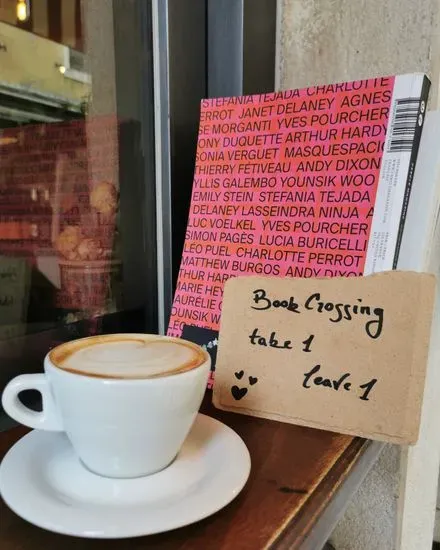 STEFANIA TEJADA CHARLOTTE
PERROT JANET DELANEY AGNES
SE MORGANTI YVES POURCHER
ONY DUQUETTE ARTHUR HARDY
SONIA VERGUET MASQUESPACIO
THIERRY FÉTIVEAU ANDY DIXON
YLLIS GALEMBO YOUNSIK WOO
EMILY STEIN STEFANIA TEJADA
DELANEY LASSEINDRA NINJA A
LUC VOELKEL YVES POURCHER
SIMON PAGÈS LUCIA BURICELLI
LÉO PUEL CHARLOTTE PERROT
MATTHEW BURGOS ANDY DIXON
THUR HAR
MARIE HEY
AURÉLIE
OUNSIK W
LÉO PUEL
Book Crossing
take 1
leave 1